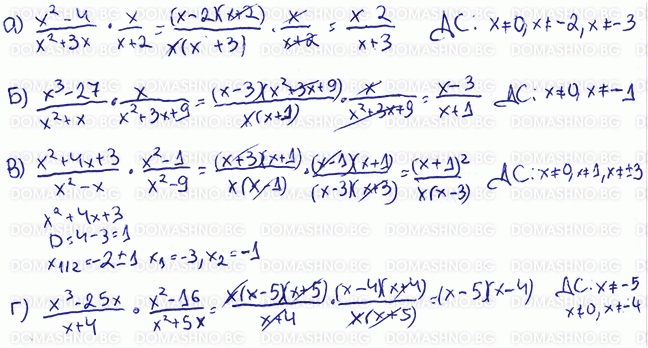 а) (x²-4)/(x²+3x) · x/(x+2) = ((x-2)(x+2))/(x(x+3)) · x/(x+2) = (x 2)/(x+3) ДС: x≠0, x≠-2, x≠-3
Б) (x³-27)/(x²+x) · x/(x²+3x+9) = ((x-3)(x²+3x+9))/(x(x+1)) · x/(x²+3x+9) = (x-3)/(x+1) ДС: x≠0, x≠-1
в) (x²+4x+3)/(x²-x) · (x²-1)/(x²-9) = ((x+3)(x+1))/(x(x-1)) · ((x-1)(x+1))/((x-3)(x+3)) = (x+1)²/(x(x-3)) ДС: x≠0, x≠1, x≠±3
x²+4x+3
D=4-3=1
x₁/₂=-2±1 x₁=-3, x₂=-1
г) (x³-25x)/(x+4) · (x²-16)/(x²+5x) = (x(x-5)(x+5))/(x+4) · ((x-4)(x+4))/(x(x+5)) = (x-5)(x-4) ДС: x≠-5
x≠0, x≠-4
DOMASHNO.BG